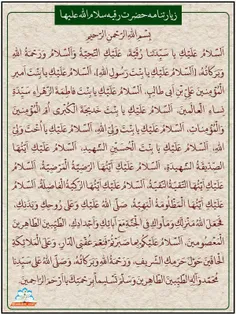 زیارتنامه حضرت رقیه سلام الله علیها
بِسْمِ اللهِ الرَّحْمنِ الرَّحيمِ
اَلسَّلامُ عَلَيْكِ يا سَيِّدَتَنا رُقَيَّةَ، عَلَيْكِ التَّحِيَّةُ وَ السَّلامُ وَ رَحْمَةُ اللهِ
وَ بَرَكاتُهُ، اَلسَّلامُ عَلَيْكِ يا بِنْتَ رَسُولِ اللهِ، اَلسَّلامُ عَلَيْكِ يا بِنْتَ اَميرِ
الْمُؤْمِنينَ عَلِيِّ بْنِ اَبي طالِبٍ، اَلسَّلامُ عَلَيْكِ يا بِنْتَ فاطِمَةَ الزَّهْراءِ سَيِّدَةِ
نِساءِ الْعالَمينَ، اَلسَّلامُ عَلَيْكِ يا بِنْتَ خَديجَةَ الْكُبْرى اُمِّ الْمُؤْمِنينَ
وَ الْمُؤْمِناتِ، اَلسَّلامُ عَلَيْكِ يا بِنْتَ وَلِيِّ اللهِ، اَلسَّلامُ عَلَيْكِ يا اُخْتَ وَلِيِّ
اللهِ، اَلسَّلامُ عَلَيْكِ يا بِنْتَ الْحُسَيْنِ الشَّهيدِ، اَلسَّلامُ عَلَيْكِ اَيَّتُهَا
الصِّدّيقَةُ الشَّهيدَةُ، اَلسَّلامُ عَلَيْكِ اَيَّتُهَا الرَّضِيَّةُ الْمَرْضِيَّةُ، اَلسَّلامُ
عَلَيْكِ اَيَّتُهَا التَّقِيَّةُ النَّقِيَّةُ، اَلسَّلامُ عَلَيْكِ اَيَّتُهَا الزَّكِيَّةُ الْفاضِلَةُ، اَلسَّلامُ
عَلَيْكِ اَيَّتُهَا الْمَظْلُومَةُ الْبَهِيَّةُ، صَلَّى اللهُ عَلَيْكِ وَ عَلى رُوحِكِ وَ بَدَنِكِ،
فَجَعَلَ اللهُ مَنْزِلَكِ وَ مَأْواكِ فِي الْجَنَّةِ مَعَ آبائِكِ وَ اَجْدادِكِ، الطَّيِّبينَ الطّاهِرينَ
الْمَعْصُومينَ، اَلسَّلامُ عَلَيْكُمْ بِما صَبَرْتُمْ فَنِعْمَ عُقْبَى الدّارِ، وَ عَلَى الْمَلائِكَةِ
الْحافّينَ حَوْلَ حَرَمِكِ الشَّريفِ، وَ رَحْمَةُ اللهِ وَ بَرَكاتُهُ، وَ صَلَّى اللهُ عَلى سَيِّدِنا
مُحَمَّدٍ وَ آلِهِ الطَّيِّبينَ الطّاهِرينَ وَ سَلَّمَ تَسْليماً بِرَحْمَتِكَ يا اَرْحَمَ الرّاحِمينَ.